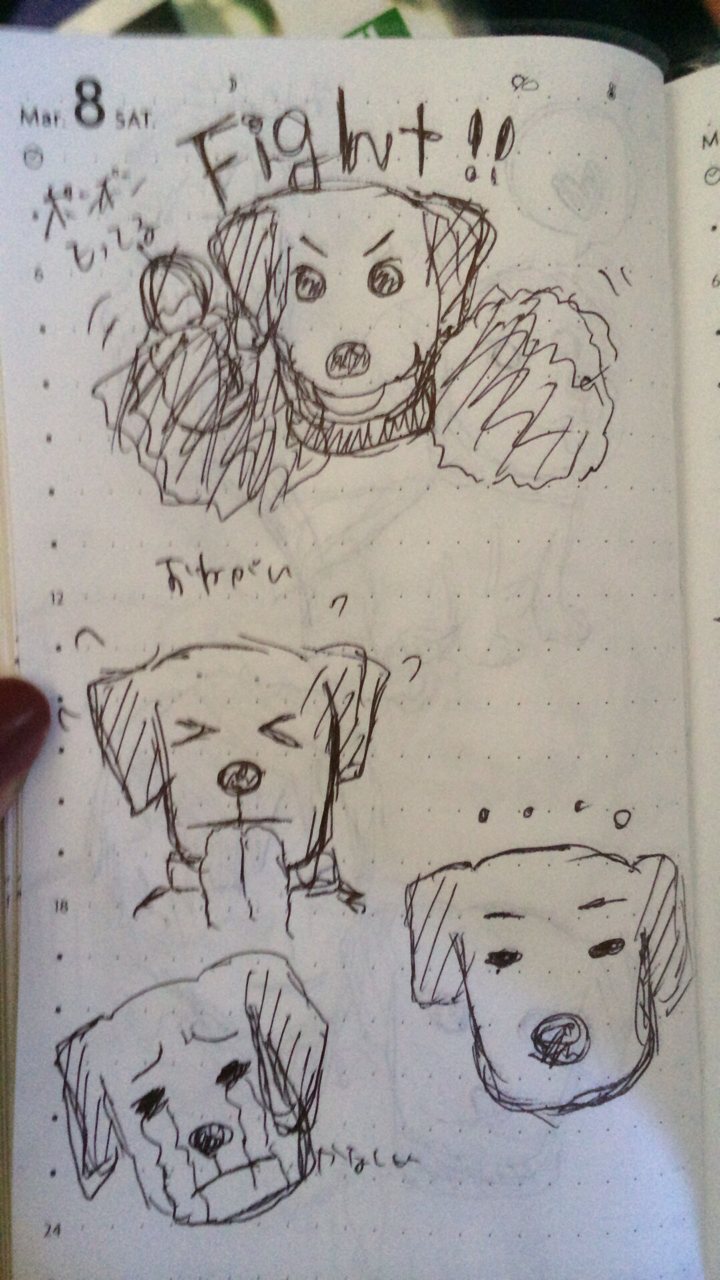 Mar. 8 SAT.
Fight!!
ボンボン
もってる
6
おねがい
12
18
かなしい
24